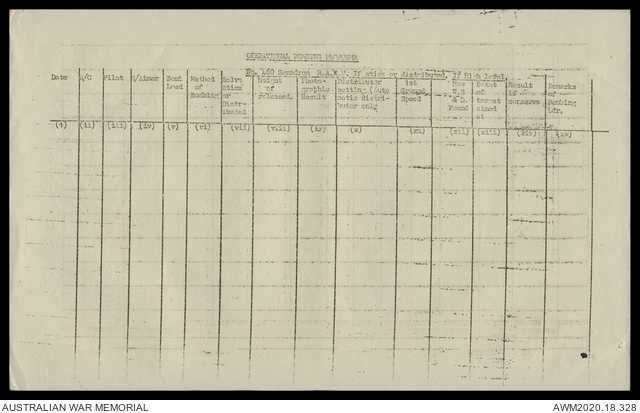 OPERATIONAL BOMBING PROFORMA
No. 460 Squadron R.A.A.F. If stick or distributed. If High level.
Date A/C Pilot B/Aimer Bomb Load Method of Bombing Salvo Stick or Distributed Height of released. Photographic Result Distributor setting (auto matic distributor only 1st Ground Speed How W.S & D. Found Point of target aimed at Result if Remarks of Bombing Ldr.
(i) (ii) (iii) (iv) (v) (vi) (vii) (viii) (ix) (x) (xi) (xii) (xiii) (xiv) (xv)
AUSTRALIAN WAR MEMORIAL
AWM2020.18.328